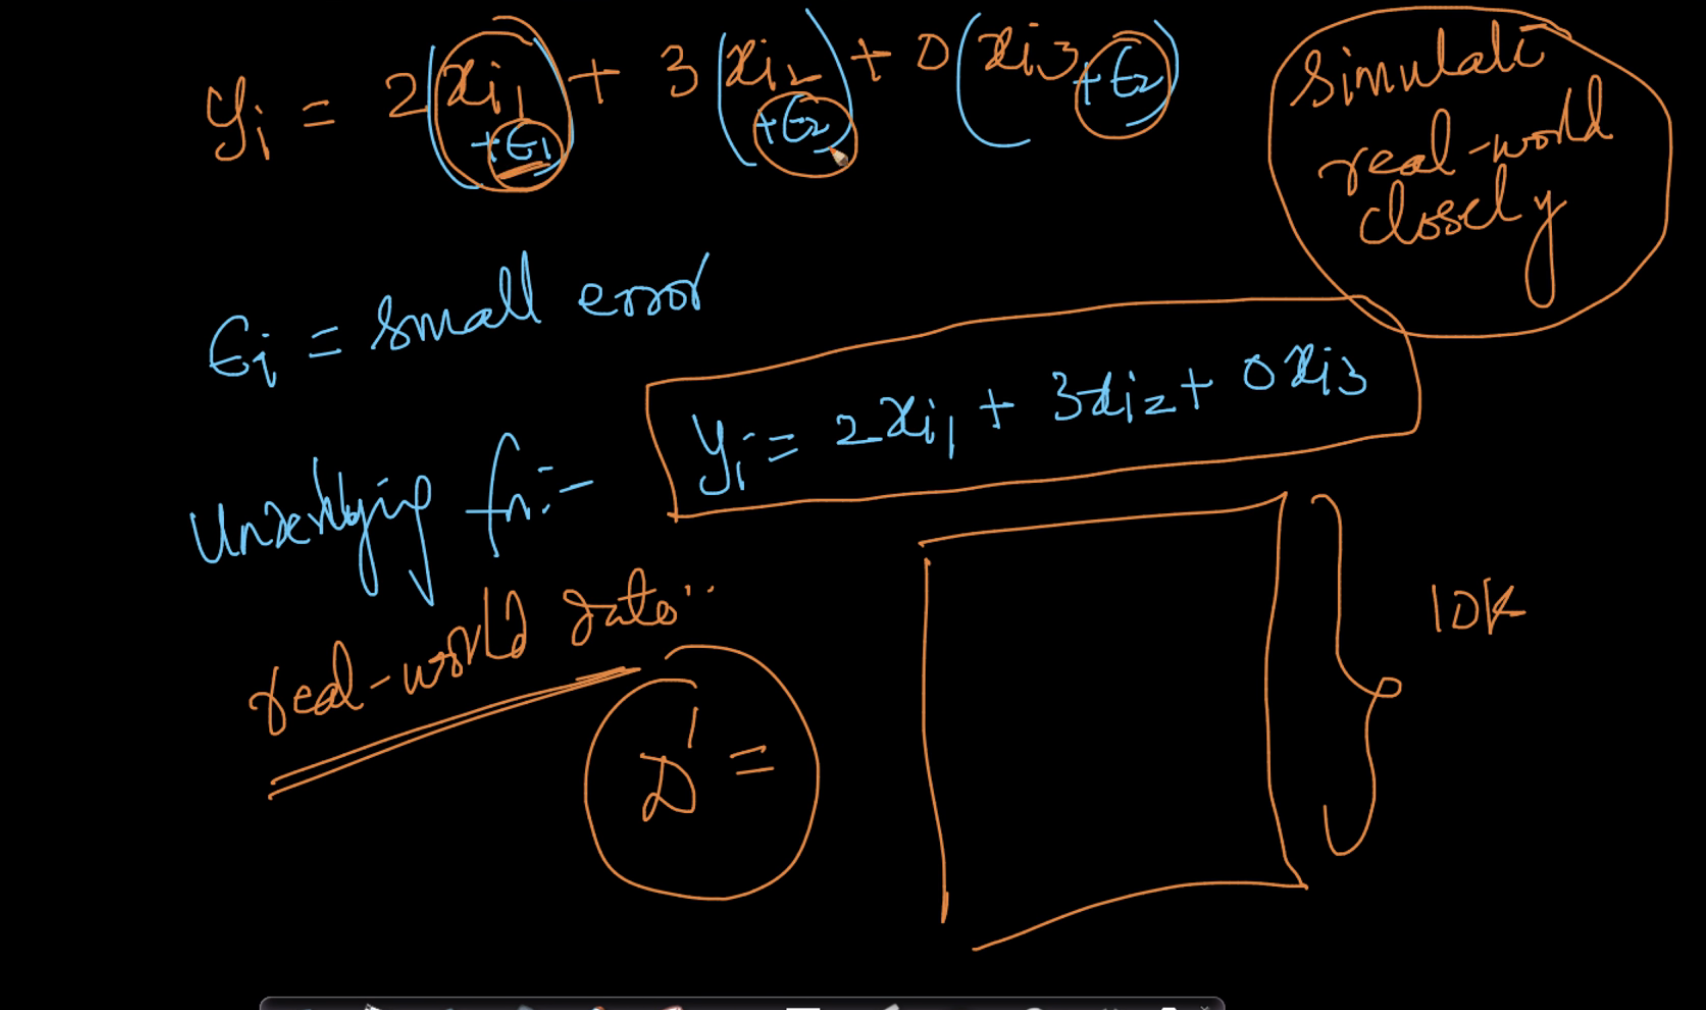 yᵢ = 2(xᵢ₁ + ϵ₁) + 3(xᵢ₂ + ϵ₂) + 0(xᵢ₃ + ϵ₂)
Simulate
real-world
closely
ϵᵢ = small error
Underlying fn:- yᵢ = 2xᵢ₁ + 3xᵢ₂ + 0xᵢ₃
real-world data..
D' =
10K